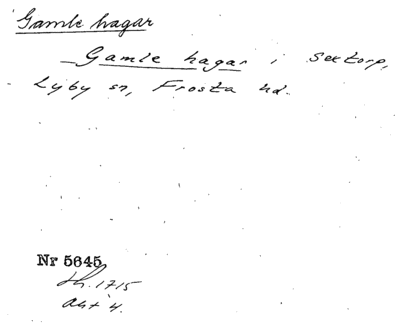 Gamle hagar
Gamle hagar i Sextorp,
Lyby sn, Frosta hd.
Nr 5645
Lh. 1715
Akt 4.